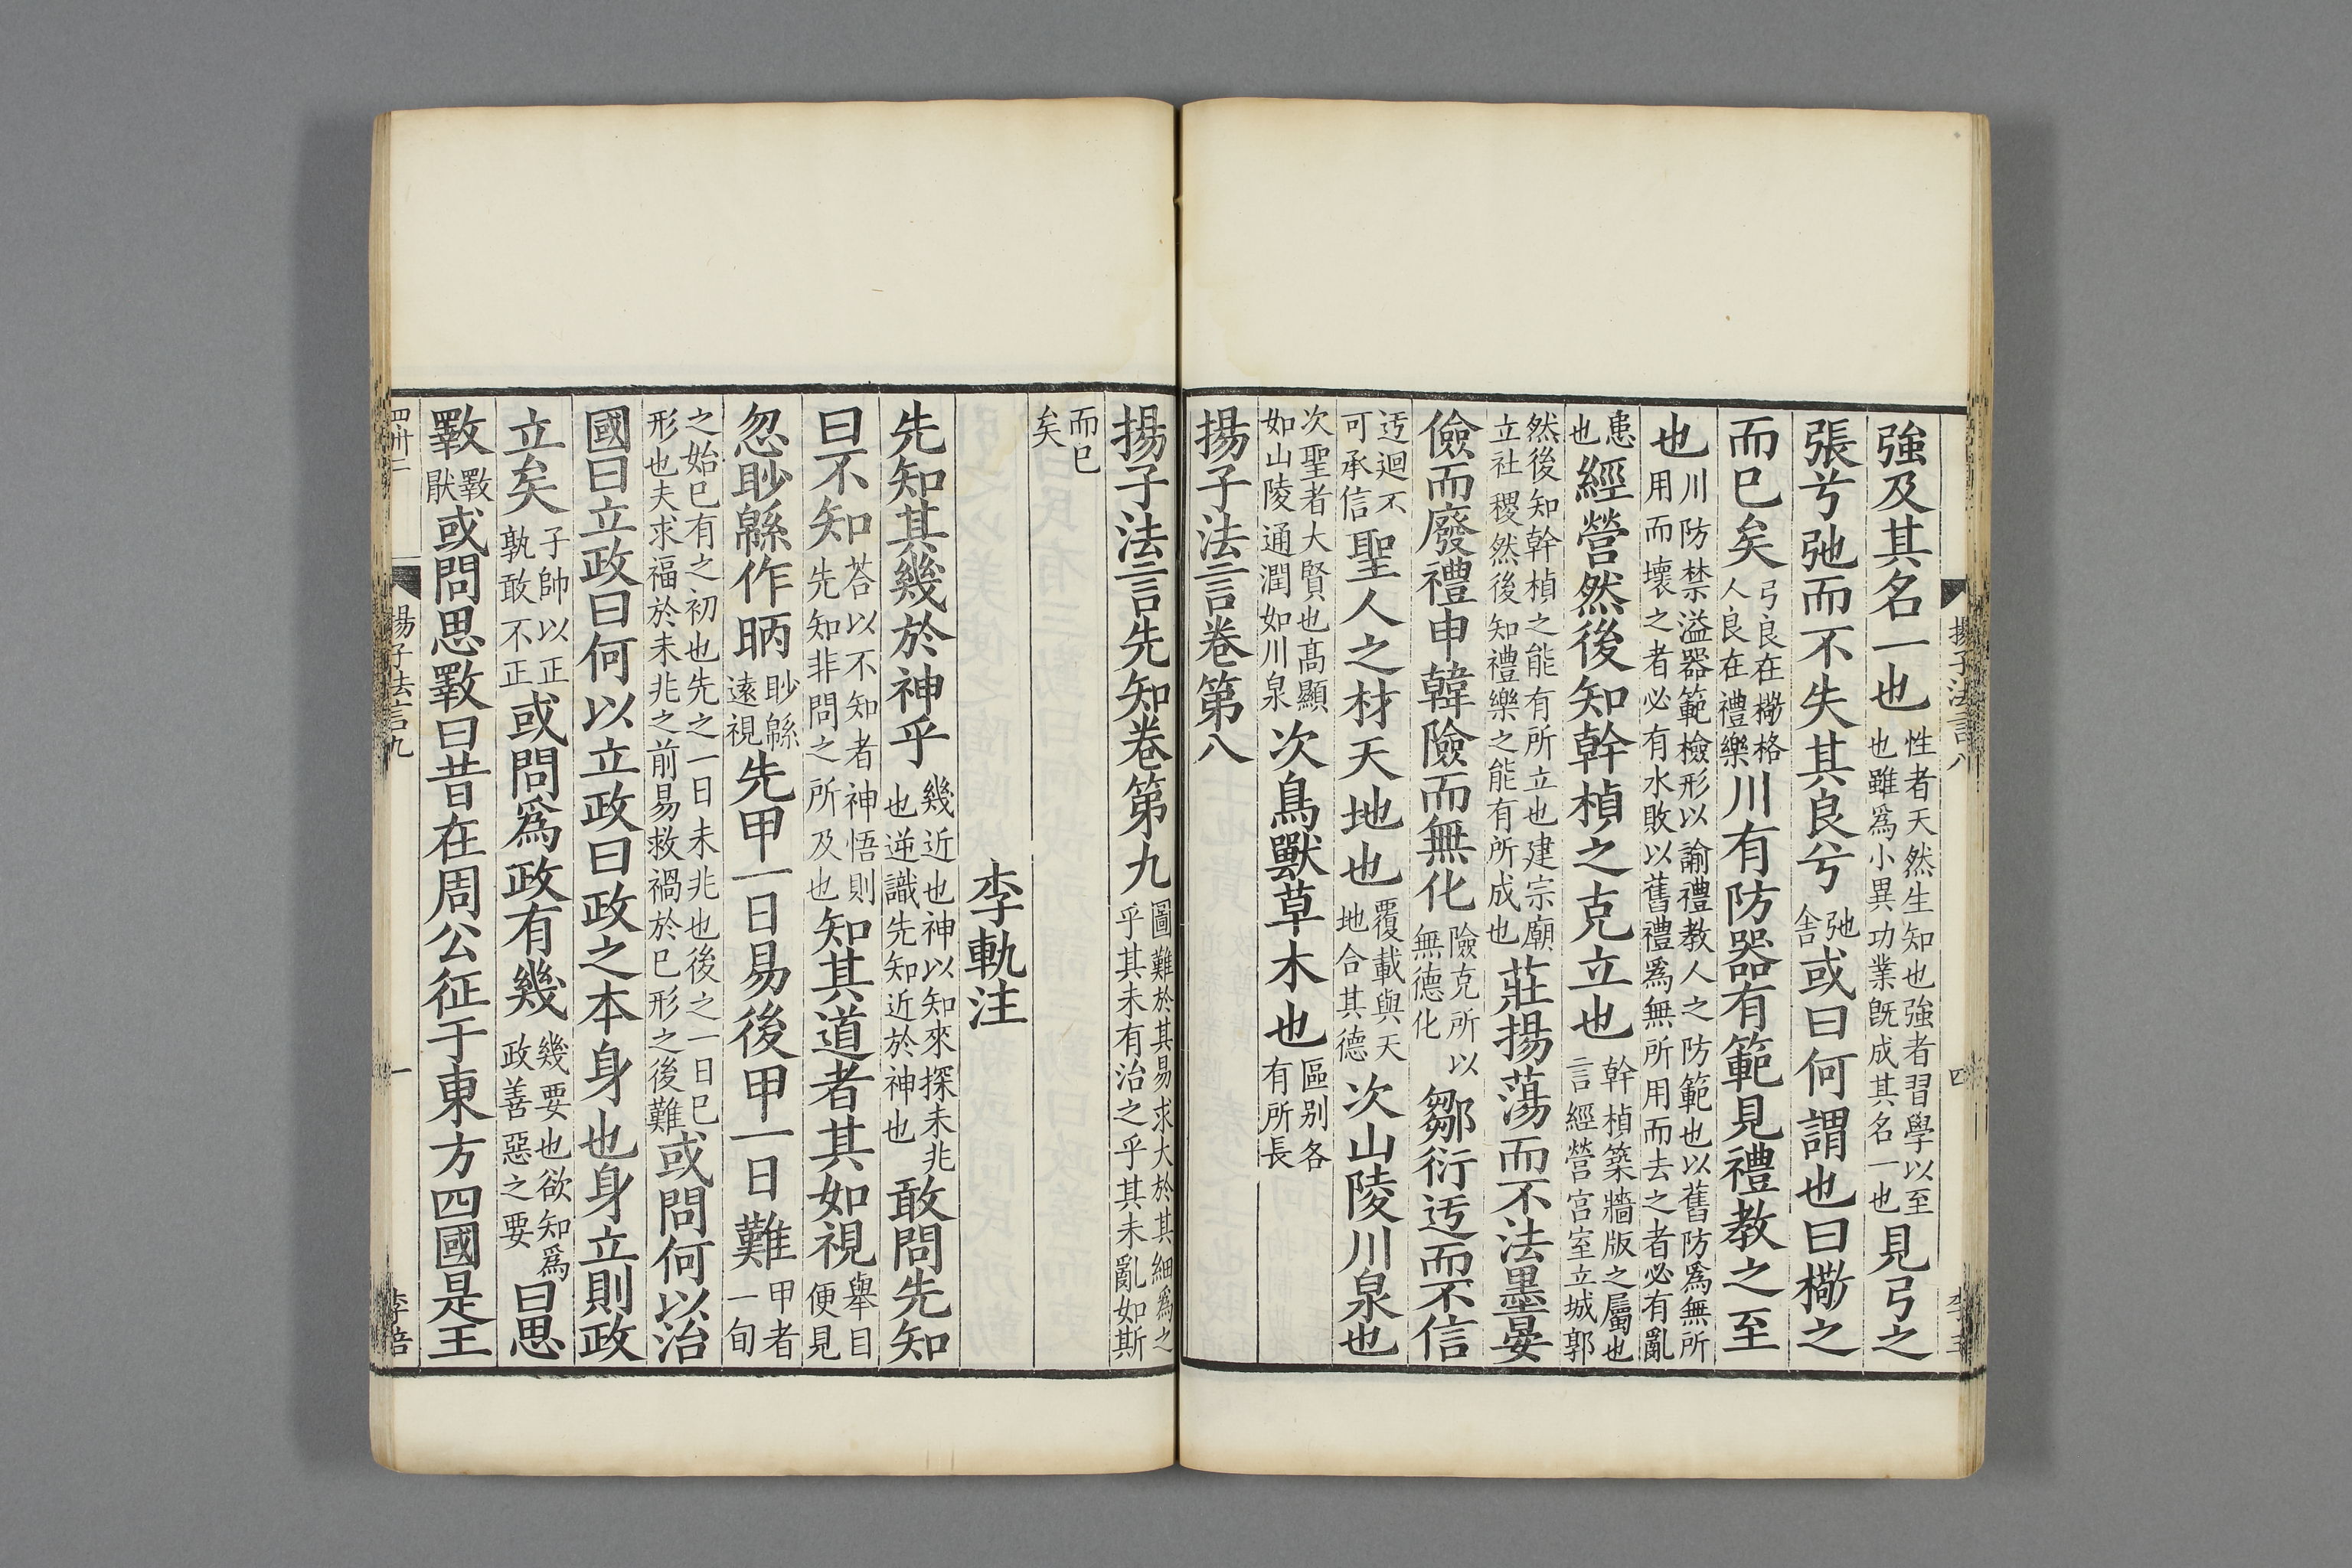 強及其名一也性者天然生知也強者習學以至也雖爲小異功業既成其名一也見弓之
張兮弛而不失其良兮弛舎或曰何謂也曰檠之
而已矣弓良在檠格人良在禮樂川有防器有範見禮教之至
也川防禁溢器範檢形以諭禮教人之防範也以舊防爲無所用而壞之者必有水敗以舊禮爲無所用而去之者必有亂
患也經營然後知幹楨之克立也幹楨築牆版之屬也言經營宫室立城郭
然後知幹楨之能有所立也建宗廟立社稷然後知禮樂之能有所成也莊揚蕩而不法墨晏
儉而廢禮申韓險而無化險克所以無德化鄒衍迃而不信
迃迴不可承信聖人之材天地也覆載與天地合其德次山陵川泉也
次聖者大賢也髙顯如山陵通潤如川泉次鳥獸草木也區别各有所長
揚子法言卷第八
揚子法言八
四
揚子法言先知卷第九圖難於其易求大於其細爲之乎其未有治之乎其未亂如斯
而已矣
李軌注
先知其幾於神乎幾近也神以知來探未兆也逆識先知近於神也敢問先知
曰不知荅以不知者神悟則先知非問之所及也知其道者其如視舉目便見
忽眇緜作昞眇緜遠視先甲一日易後甲一日難甲者一旬
之始已有之初也先之一日未兆也後之一日已形也夫求福於未兆之前易救禍於已形之後難或問何以治
國曰立政曰何以立政曰政之本身也身立則政
立矣子帥以正孰敢不正或問爲政有幾幾要也欲知爲政善惡之要曰思
斁斁猒或問思斁曰昔在周公征于東方四國是王
四卅二
揚子法言九
一
李倍